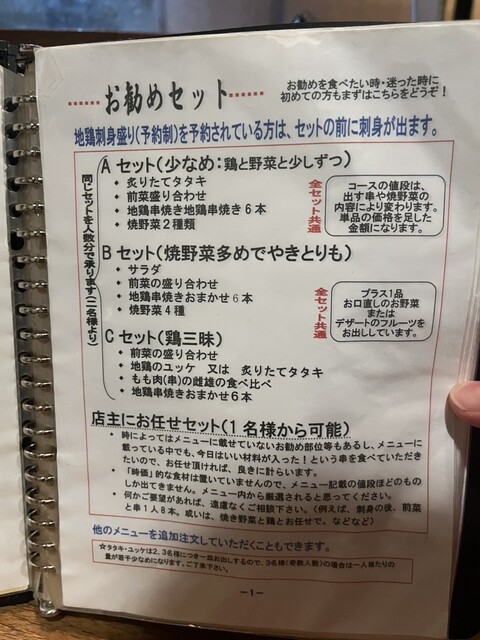 ……お勧めセット……
お勧めを食べたい時・迷った時に
初めての方もまずはこちらをどうぞ！
地鶏刺身盛り(予約制)を予約されている方は、セットの前に刺身が出ます。
同じセットを人数分で承ります(二名様より)
A セット(少なめ：鶏と野菜と少しずつ)
・ 炙りたてタタキ
・ 前菜盛り合わせ
・ 地鶏串焼き地鶏串焼き６本
・ 焼野菜２種類
全セット共通
コースの値段は、
出す串や焼野菜の
内容により変わります。
単品の価格を足した
金額になります。
B セット(焼野菜多めでやきとりも)
・ サラダ
・ 前菜の盛り合わせ
・ 地鶏串焼きおまかせ６本
・ 焼野菜４種
全セット共通
プラス1品
お口直しのお野菜
または
デザートのフルーツを
お出ししています。
C セット(鶏三昧)
・ 前菜の盛り合わせ
・ 地鶏のユッケ 又は 炙りたてタタキ
・ もも肉(串)の雌雄の食べ比べ
・ 地鶏串焼きおまかせ６本
店主にお任せセット(１名様から可能)
・ 時によってはメニューに載せていないお勧め部位等もあるし、メニューに
載っている中でも、今日はいい材料が入った！という串を食べていただき
たいので、お任せ頂ければ、良きに計らいます。
・ 「時価」的な食材は置いていませんので、メニュー記載の値段ほどのもの
しか出てきません。メニュー内から厳選されると思ってください。
・ 何かご要望があれば、遠慮なくご相談下さい。(例えば、刺身の後、前菜
と串１人８本。或いは、焼き野菜と鶏とお任せで、などなど)
他のメニューを追加注文していただくこともできます。
☆タタキ・ユッケは2、3名様につき一皿お出しするので、3名様(奇数人数)の場合は一人頭たりの
量が若干少なめになります。ご了承下さい。
－1－